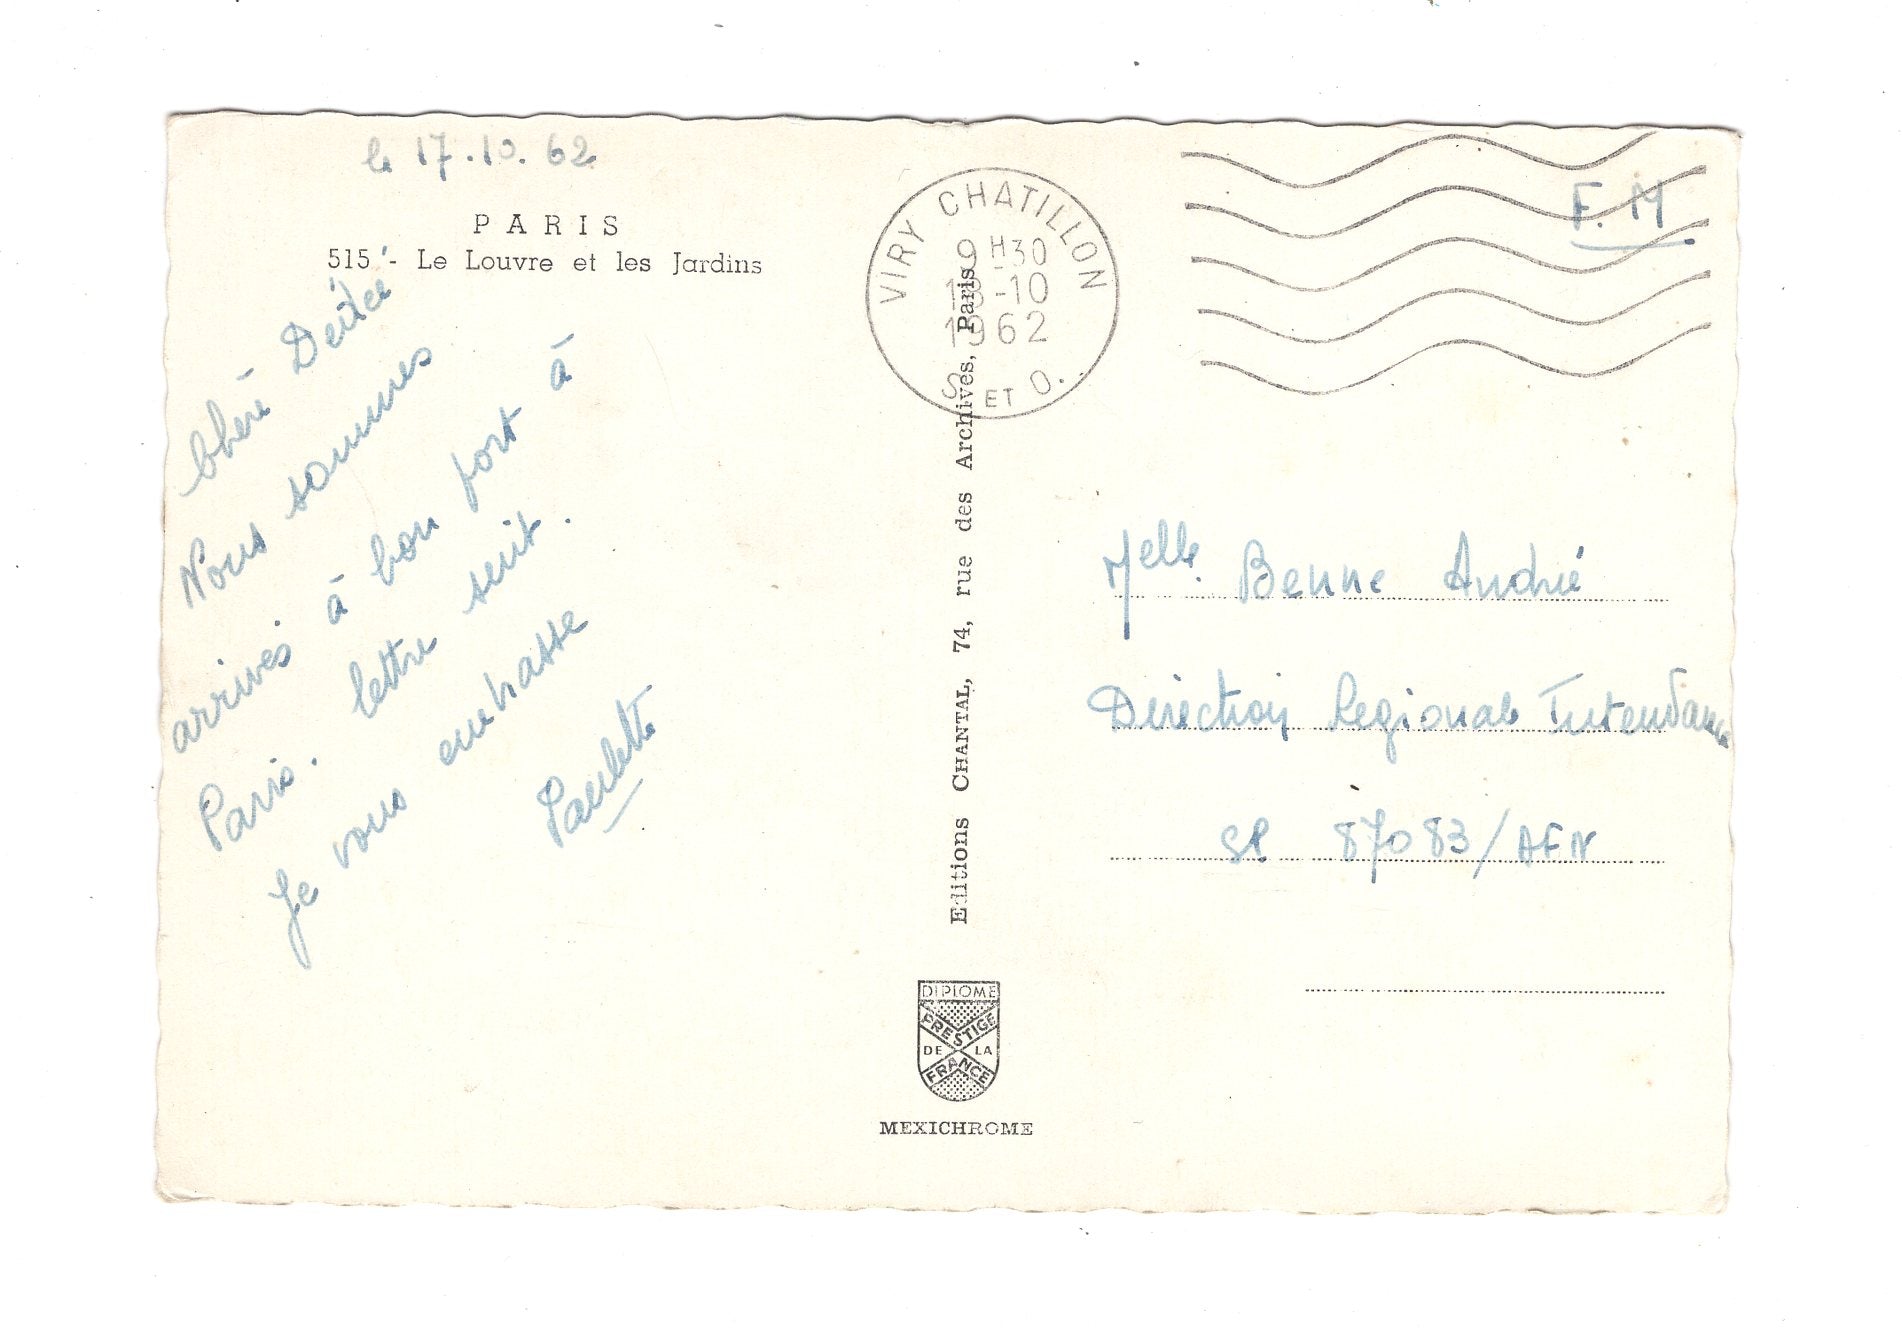 le 17.10.62
PARIS
515 - Le Louvre et les Jardins
Chère Dédée
Nous sommes
arrivés à bon port à
Paris. lettre suit.
Je vous embrasse
Paulette
VIRY CHATILLON
9H30
18-10
1962
S. ET O.
F.M
Editions CHANTAL, 74, rue des Archives, Paris
Melle. Benne André
Diréction Regional Intendance
SP 87083/AFN
DIPLOME
PRESTIGE
DE LA
FRANCE
MEXICHROME